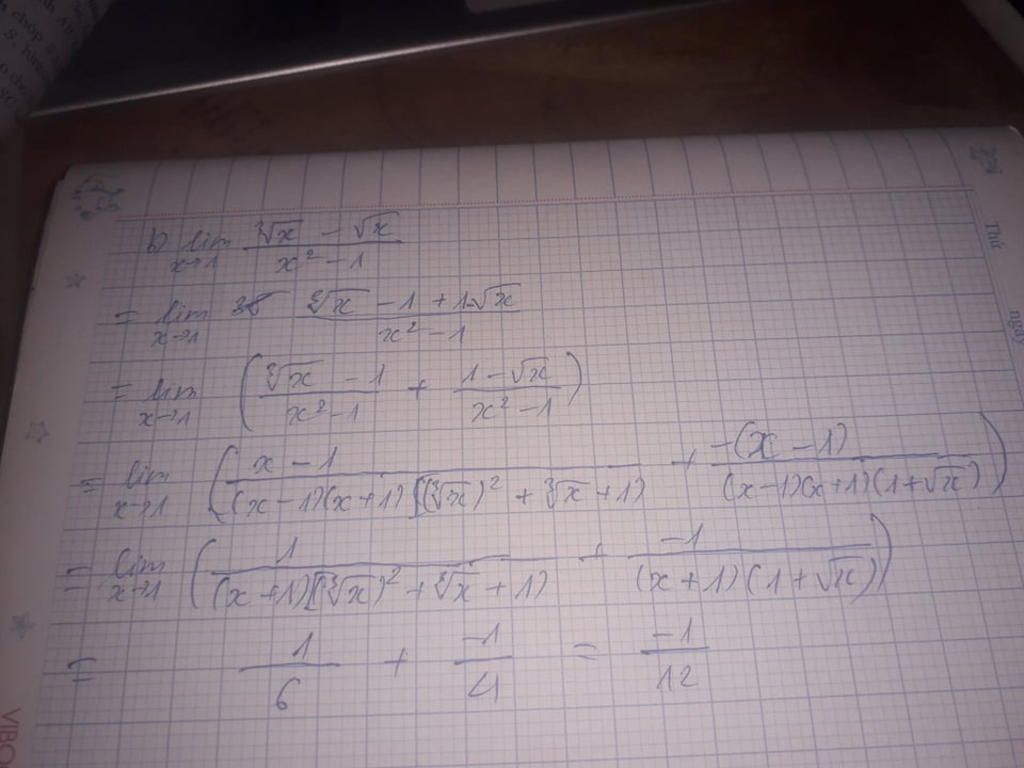 b) lim x→1 (∛x − √x)/(x² − 1)
= lim x→1 (∛x − 1 + 1 − √x)/(x² − 1)
= lim x→1 ((∛x − 1)/(x² − 1) + (1 − √x)/(x² − 1))
= lim x→1 ((x − 1)/((x − 1)(x + 1)[(∛x)² + ∛x + 1) + (−(x − 1))/((x − 1)(x + 1)(1 + √x)))
= lim x→1 (1/((x + 1)[(∛x)² + ∛x + 1) + (−1)/((x + 1)(1 + √x)))
= 1/6 + (−1)/4 = (−1)/12
Thứ
ngày
VIBO